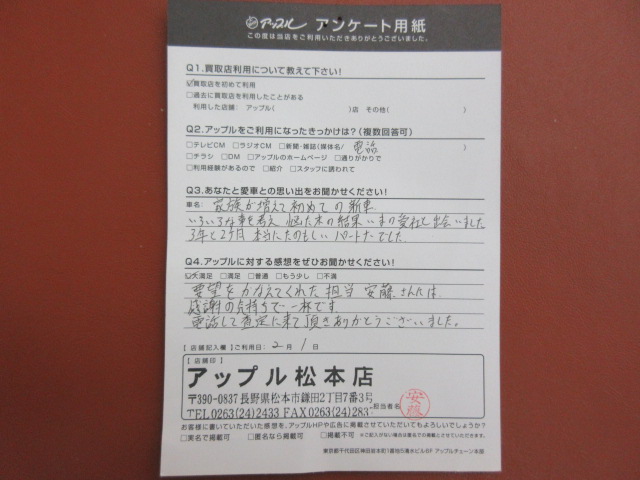 アップル アンケート用紙
この度は当店をご利用いただきありがとうございました。
Q1.買取店利用について教えて下さい!
☑買取店を初めて利用
□過去に買取店を利用したことがある
利用した店舗: アップル( )店 その他( )
Q2.アップルをご利用になったきっかけは?(複数回答可)
□テレビCM □ラジオCM □新聞・雑誌(媒体名/ 電話 )
□チラシ □DM □アップルのホームページ □通りがかりで
□利用経験があるので □紹介 □スタッフに誘われて
Q3.あなたと愛車との思い出をお聞かせください!
車名: 家族が増えて初めての新車
いろいろな車を考え 悩んだ末の結果 いまの愛社と出会いました
3年と2ヶ月 本当にたのもしいパートナーでした
Q4.アップルに対する感想をぜひお聞かせください!
☑大満足 □満足 □普通 □もう少し □不満
要望をかなえてくれた担当 安藤さんには
感謝の気持ちで一杯です。
電話して査定に来て頂きありがとうございました。
【店舗記入欄】ご利用日: 2月 1日
【店舗印】
アップル松本店
〒390-0837長野県松本市鎌田2丁目7番3号
TEL0263(24)2433 FAX0263(24)283
担当者名 安藤
お客様に書いていただいた感想を、アップルHPや広告に掲載させていただいてもよろしいでしょうか?
□実名で掲載可 □匿名なら掲載可 □掲載不可 ※ご記入がない場合は匿名での掲載とさせていただきます。
東京都千代田区神田岩本町1番地5清水ビル6F アップルチェーン本部